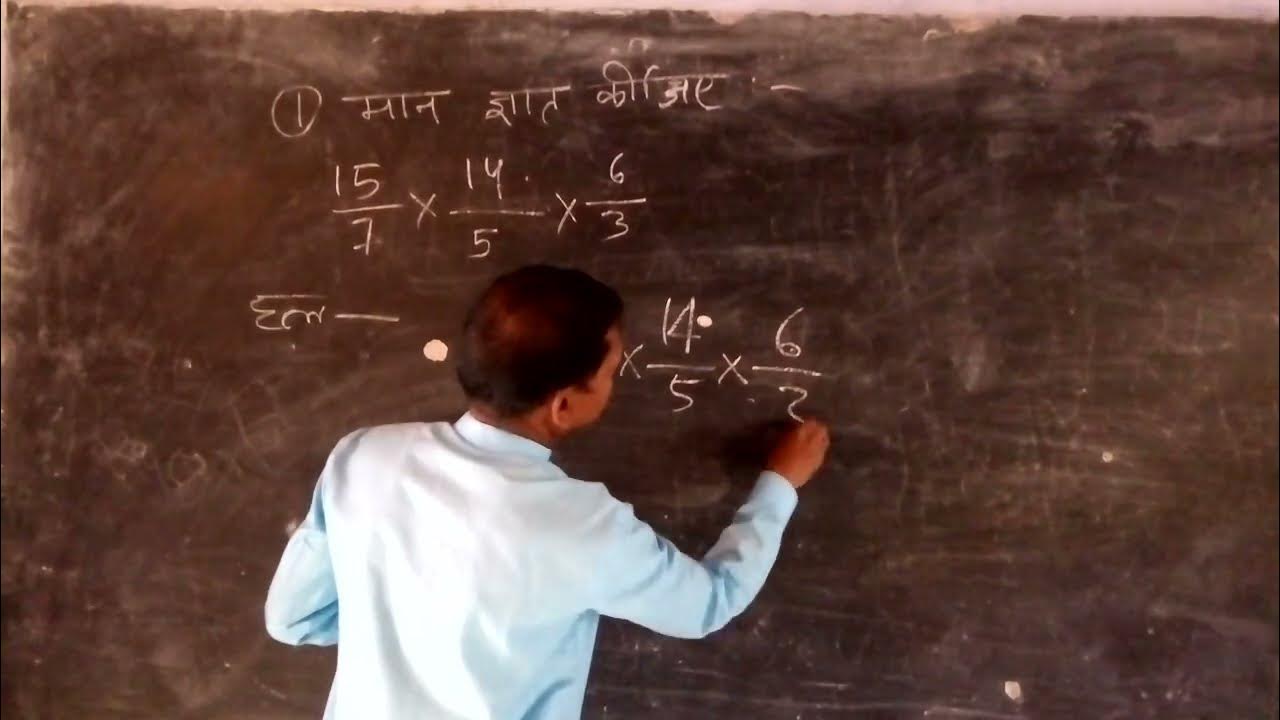 ① मान ज्ञात कीजिए :-
15/7 × 14/5 × 6/3
हल —
× 14/5 × 6/3